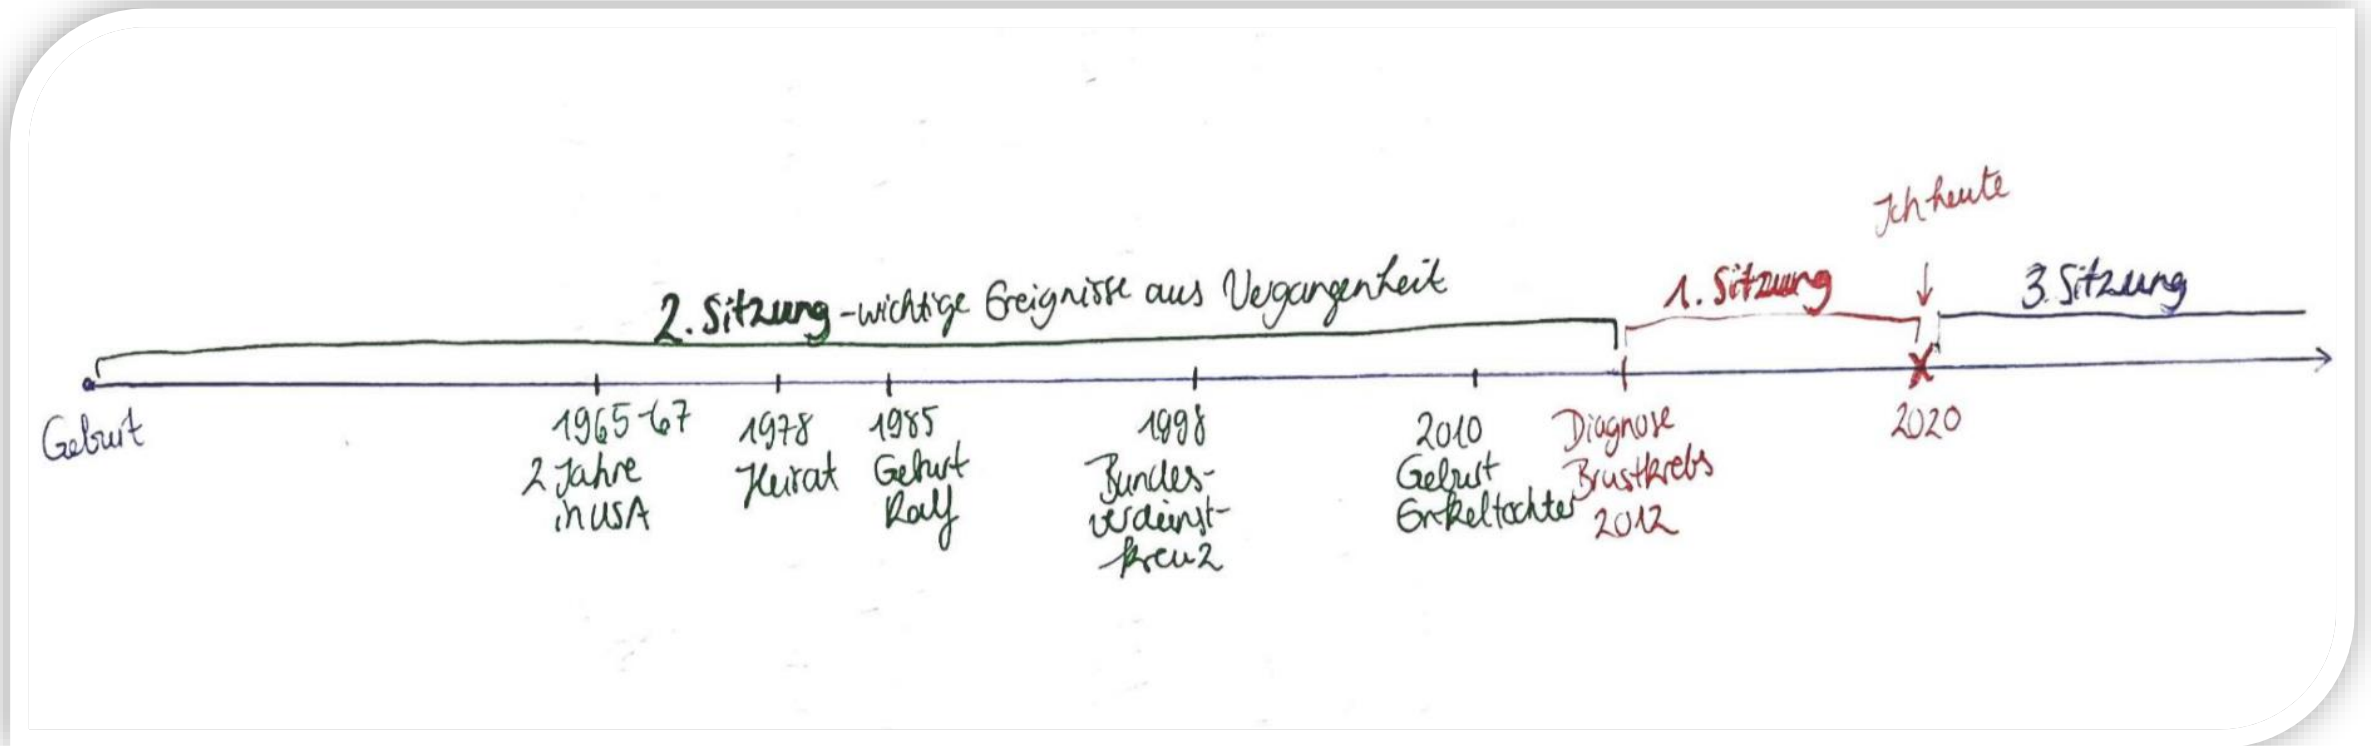 Ich heute
2. Sitzung - wichtige Ereignisse aus Vergangenheit
1. Sitzung
3. Sitzung
Geburt
1965-67
2 Jahre
in USA
1978
Heirat
1985
Geburt
Ralf
1998
Bundes-
verdeinst-
kreuz
2010
Geburt
Enkeltochter
Diagnose
Brustkrebs
2012
2020